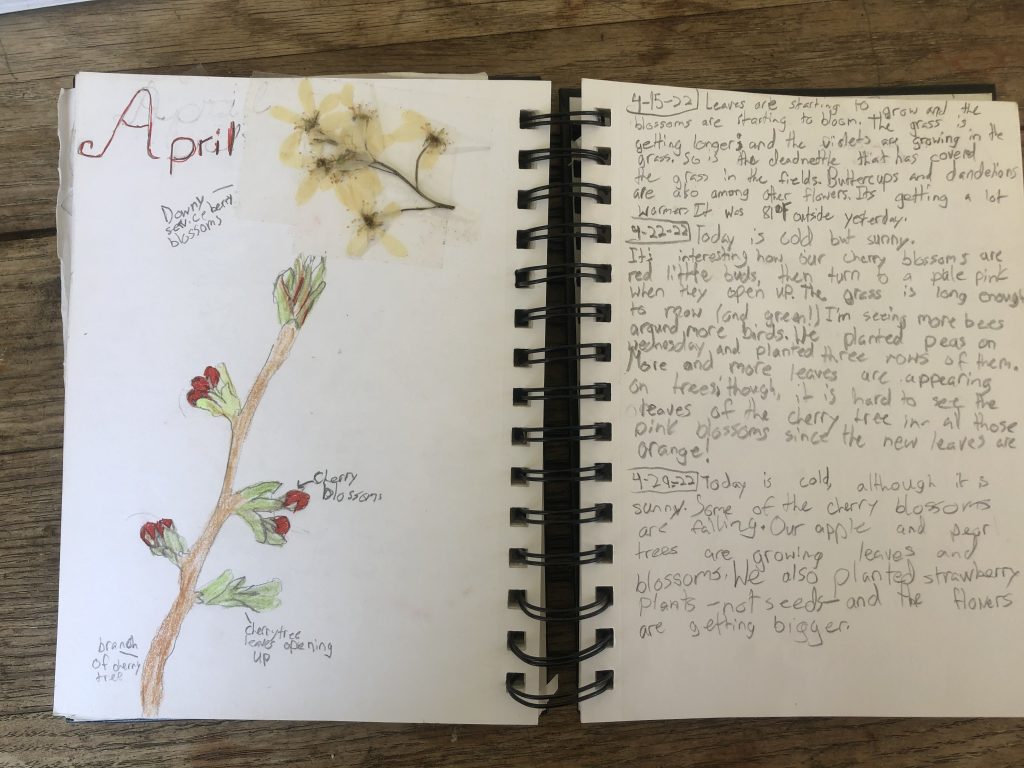 April
April
Downy
serviceberry
blossoms
cherry
blossoms
cherry tree
leaves opening
up
branch
of cherry
tree
4-15-22 Leaves are starting to grow and the
blossoms are starting to bloom. The grass is
getting longer; and the violets are growing in the
grass. So is the deadnettle that has coverd
the grass in the fields. Buttercups and dandelions
are also among other flowers. Its getting a lot
warmer. It was 81°F outside yesterday.
4-22-22 Today is cold but sunny.
It's interesting how our cherry blossoms are
red little buds, then turn to a pale pink
when they open up. The grass is long enough
to mow (and green!) I'm seeing more bees
around, more birds. We planted peas on
Wednesday and planted three rows of them.
More and more leaves are appearing
on trees, though, it is hard to see the
leaves of the cherry tree in all those
pink blossoms since the new leaves are
orange!
4-29-22 Today is cold, although it is
sunny. Some of the cherry blossoms
are falling. Our apple and pear
trees are growing leaves and
blossoms. We also planted strawberry
plants - not seeds - and the flowers
are getting bigger.